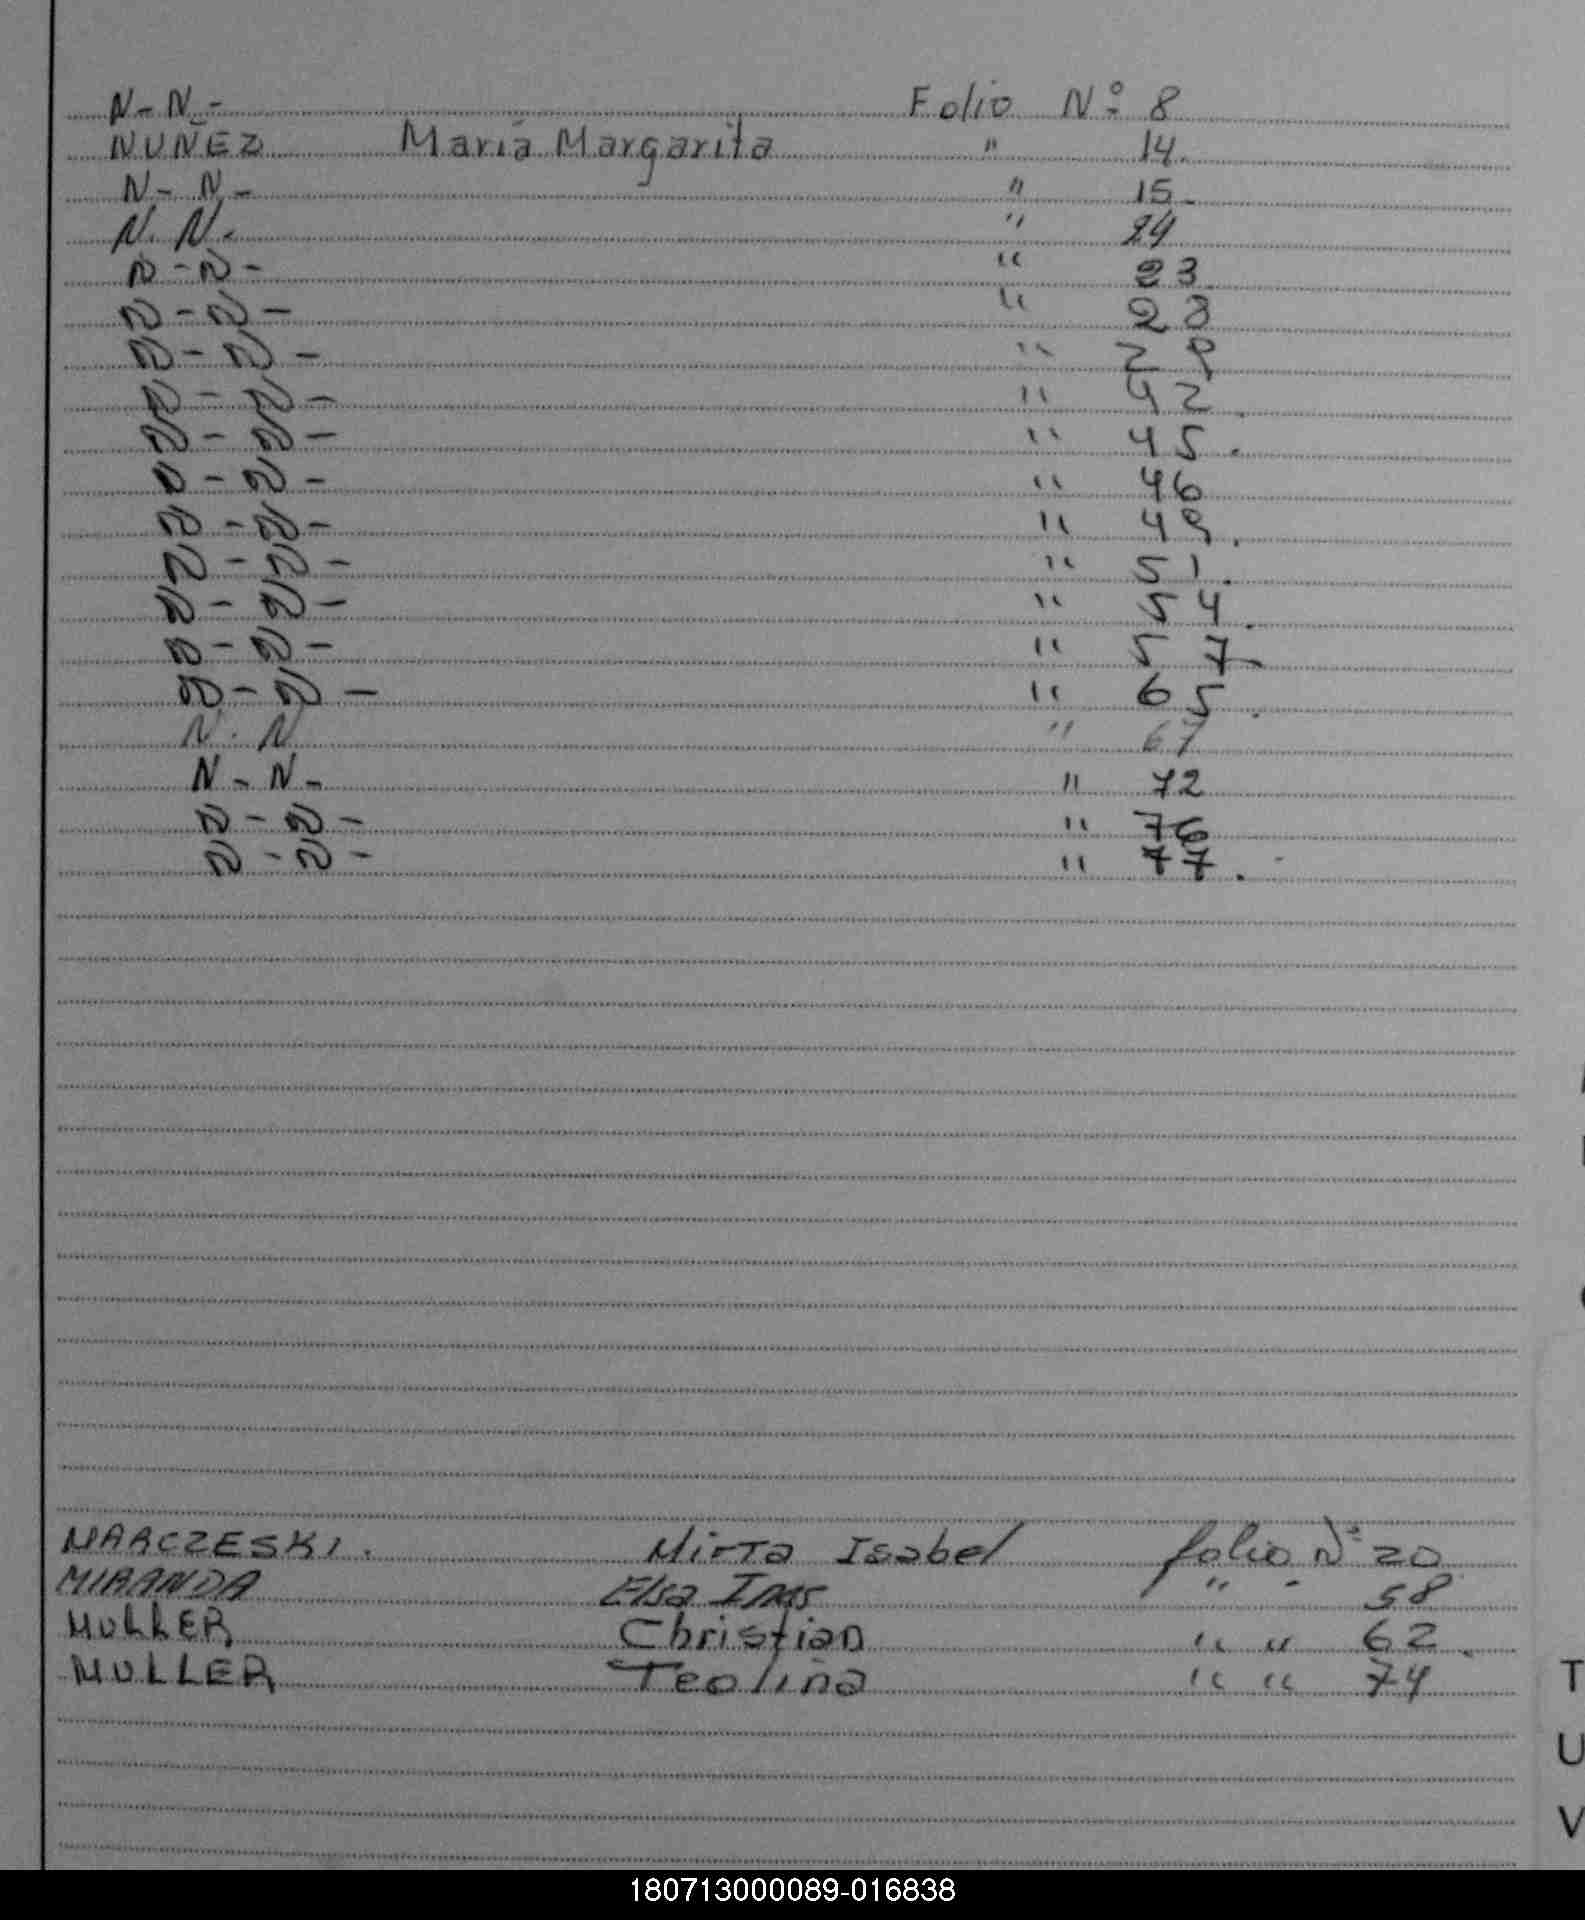 N-N- Folio Nº 8
NUÑEZ María Margarita " 14.
N-N- " 15-
N.N. " 24
N-N- " 23.
N-N- " 28
N-N- " 29
N-N- " 42.
N-N- " 45.
N-N- " 46
N-N- " 49.
N-N- " 51.
N-N- " 54.
N-N- " 57-
N-N- " 65.
N.N " 67
N-N- " 72
N-N- " 76
N-N- " 77.
MARCZESKI. Mirta Isabel folio Nº 20
MIRANDA Elsa " " 58
MULLER Christian " " 62.
MULLER Teolina " " 74
T
U
V
180713000089-016838